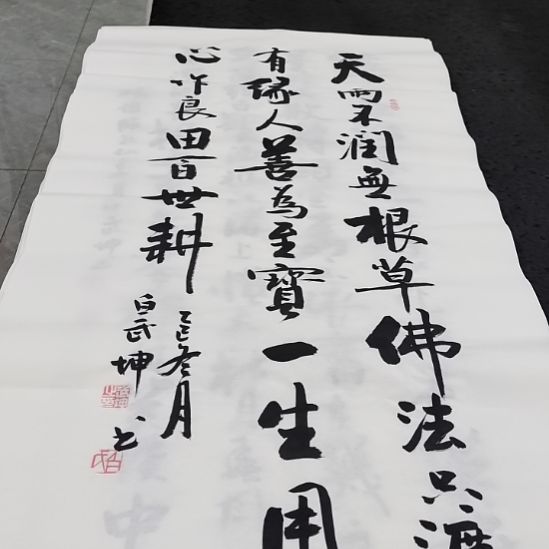 天雨不润無根草佛法只渡
有缘人善為至寶一生用
心作良田百世耕
乙巳冬月
白武坤书